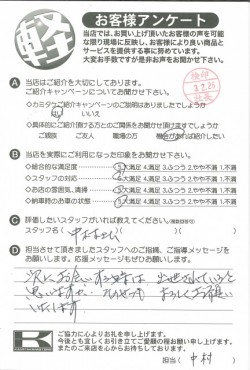 軽
お客様アンケート
当店では、お買い上げ頂いたお客様の声を可能
な限り現場に反映し、お客様により良い商品と
サービスを提供する事に努めています。
大変お手数ですが是非お声をお聞かせ下さい。
検印
A 当店はご紹介を大切にしております。
ご紹介キャンペーンについてお聞かせ下さい。
◇カミタケご紹介キャンペーンのご説明はありましたでしょうか
はい いいえ
◇具体的にご紹介頂ける方とのご関係をお聞かせ頂けますでしょうか
ご親戚 ご友人 職場の方 機会があれば紹介したい
B 当店を実際にご利用になった印象をお聞かせ下さい。
◇総合的な満足度 5.大満足 4.満足 3.ふつう 2.やや不満 1.不満
◇スタッフの対応 5.大満足 4.満足 3.ふつう 2.やや不満 1.不満
◇お店の雰囲気、清掃 5.大満足 4.満足 3.ふつう 2.やや不満 1.不満
◇納車時のお車の状態 5.大満足 4.満足 3.ふつう 2.やや不満 1.不満
C 評価したいスタッフがいれば教えてください。(複数回答可)
スタッフ名( 中村さん )
D 担当させて頂きましたスタッフへのご指摘、ご指導メッセージを
お願いします。応援メッセージもぜひお願いします。
次にお会いする時は
思います
よろしくお願い
いたします
K
ご協力に心よりお礼を申し上げます。
今後とも宜しくお引き立てご愛顧の程お願い申し上げます。
またのご来店を心からお待ちしております。
担当( 中村 )